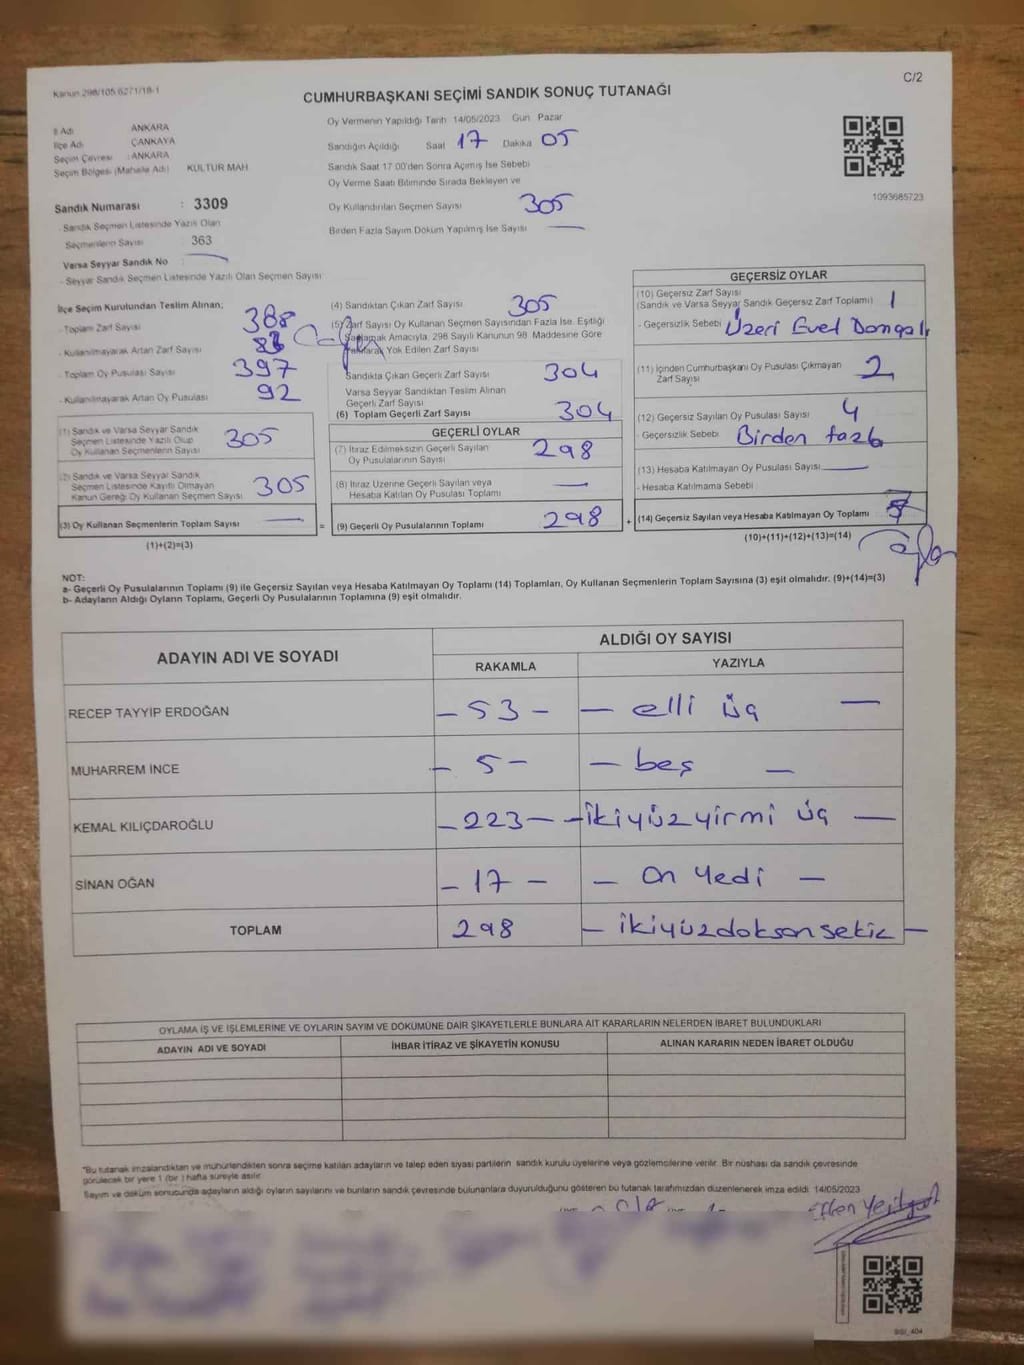 Kanun 298/105 6271/18-1
C/2
CUMHURBAŞKANI SEÇİMİ SANDIK SONUÇ TUTANAĞI
İl Adı ANKARA
İlçe Adı ÇANKAYA
Seçim Çevresi : ANKARA
Seçim Bölgesi (Mahalle Adı) KÜLTÜR MAH
Sandık Numarası : 3309
- Sandık Seçmen Listesinde Yazılı Olan
Seçmenlerin Sayısı : 363
Varsa Seyyar Sandık No
- Seyyar Sandık Seçmen Listesinde Yazılı Olan Seçmen Sayısı
Oy Vermenin Yapıldığı Tarih 14/05/2023 Gün Pazar
Sandığın Açıldığı Saat 17 Dakika 05
Sandık Saat 17 00'den Sonra Açılmış İse Sebebi
Oy Verme Saati Bitiminde Sırada Bekleyen ve
Oy Kullandırılan Seçmen Sayısı 305
Birden Fazla Sayım Döküm Yapılmış İse Sayısı —
1093685723
İlçe Seçim Kurulundan Teslim Alınan;
- Toplam Zarf Sayısı 388
- Kullanılmayarak Artan Zarf Sayısı
- Toplam Oy Pusulası Sayısı 397
- Kullanılmayarak Artan Oy Pusulası 92
(1) Sandık ve Varsa Seyyar Sandık
Seçmen Listesinde Yazılı Olup
Oy Kullanan Seçmenlerin Sayısı 305
(2) Sandık ve Varsa Seyyar Sandık
Seçmen Listesinde Kayıtlı Olmayan
Kanun Gereği Oy Kullanan Seçmen Sayısı 305
(3) Oy Kullanan Seçmenlerin Toplam Sayısı —
(1)+(2)=(3)
=
(4) Sandıktan Çıkan Zarf Sayısı 305
(5) Zarf Sayısı Oy Kullanan Seçmen Sayısından Fazla İse, Eşitliği
Sağlamak Amacıyla, 298 Sayılı Kanunun 98. Maddesine Göre
Yakılarak Yok Edilen Zarf Sayısı
Sandıkta Çıkan Geçerli Zarf Sayısı 304
Varsa Seyyar Sandıktan Teslim Alınan
Geçerli Zarf Sayısı
(6) Toplam Geçerli Zarf Sayısı 304
GEÇERLİ OYLAR
(7) İtiraz Edilmeksizin Geçerli Sayılan
Oy Pusulalarının Sayısı 298
(8) İtiraz Üzerine Geçerli Sayılan veya
Hesaba Katılan Oy Pusulası Toplamı —
(9) Geçerli Oy Pusulalarının Toplamı 298
+
GEÇERSİZ OYLAR
(10) Geçersiz Zarf Sayısı
(Sandık ve Varsa Seyyar Sandık Geçersiz Zarf Toplamı) 1
- Geçersizlik Sebebi Üzeri Evet Damgalı
(11) İçinden Cumhurbaşkanı Oy Pusulası Çıkmayan
Zarf Sayısı 2
(12) Geçersiz Sayılan Oy Pusulası Sayısı 4
- Geçersizlik Sebebi Birden fazla
(13) Hesaba Katılmayan Oy Pusulası Sayısı —
- Hesaba Katılmama Sebebi
(14) Geçersiz Sayılan veya Hesaba Katılmayan Oy Toplamı 7
(10)+(11)+(12)+(13)=(14)
NOT:
a- Geçerli Oy Pusulalarının Toplamı (9) ile Geçersiz Sayılan veya Hesaba Katılmayan Oy Toplamı (14) Toplamları, Oy Kullanan Seçmenlerin Toplam Sayısına (3) eşit olmalıdır. (9)+(14)=(3)
b- Adayların Aldığı Oyların Toplamı, Geçerli Oy Pusulalarının Toplamına (9) eşit olmalıdır.
ADAYIN ADI VE SOYADI
ALDIĞI OY SAYISI
RAKAMLA YAZIYLA
RECEP TAYYİP ERDOĞAN – 53 – — elli üç —
MUHARREM İNCE – 5 – — beş —
KEMAL KILIÇDAROĞLU – 223 – – ikiyüzyirmi üç —
SİNAN OĞAN – 17 – — on yedi —
TOPLAM 298 – ikiyüzdoksansekiz –
OYLAMA İŞ VE İŞLEMLERİNE VE OYLARIN SAYIM VE DÖKÜMÜNE DAİR ŞİKAYETLERLE BUNLARA AİT KARARLARIN NELERDEN İBARET BULUNDUKLARI
ADAYIN ADI VE SOYADI İHBAR İTİRAZ VE ŞİKAYETİN KONUSU ALINAN KARARIN NEDEN İBARET OLDUĞU
*Bu tutanak imzalandıktan ve mühürlendikten sonra seçime katılan adayların ve talep eden siyasi partilerin sandık kurulu üyelerine veya gözlemcilerine verilir. Bir nüshası da sandık çevresinde
görülecek bir yere 1 (bir) hafta süreyle asılır.
Sayım ve döküm sonucunda adayların aldığı oyların sayılarını ve bunların sandık çevresinde bulunanlara duyurulduğunu gösteren bu tutanak tarafımızdan düzenlenerek imza edildi 14/05/2023